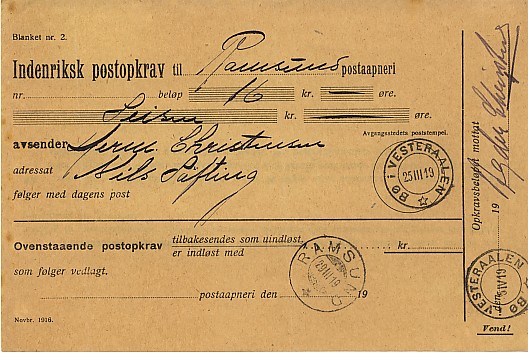 Blanket nr. 2.
Indenriksk postopkrav til Ramsund postaapneri
nr. beløp 16 kr. øre.
Seisen kr. øre.
avsender Herm Christensen
Avgangsstedets poststempel.
adressat Nils Säfting
følger med dagens post
BØ i VESTERAALEN
25 III 19
Ovenstaaende postopkrav tilbakesendes som uindløst. kr.
er indløst med
som følger vedlagt.
RAMSUND
29 III 19
postaapneri den 19
Novbr. 1916.
Opkravsbeløpet mottat
19
BØ i VESTERAALEN
5 IV 19
Vend!